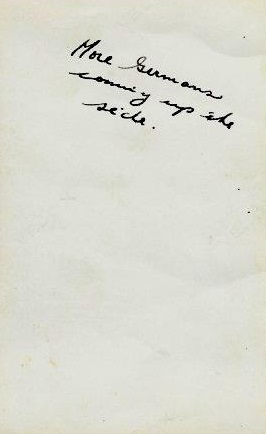 More Germans
coming up the
side.